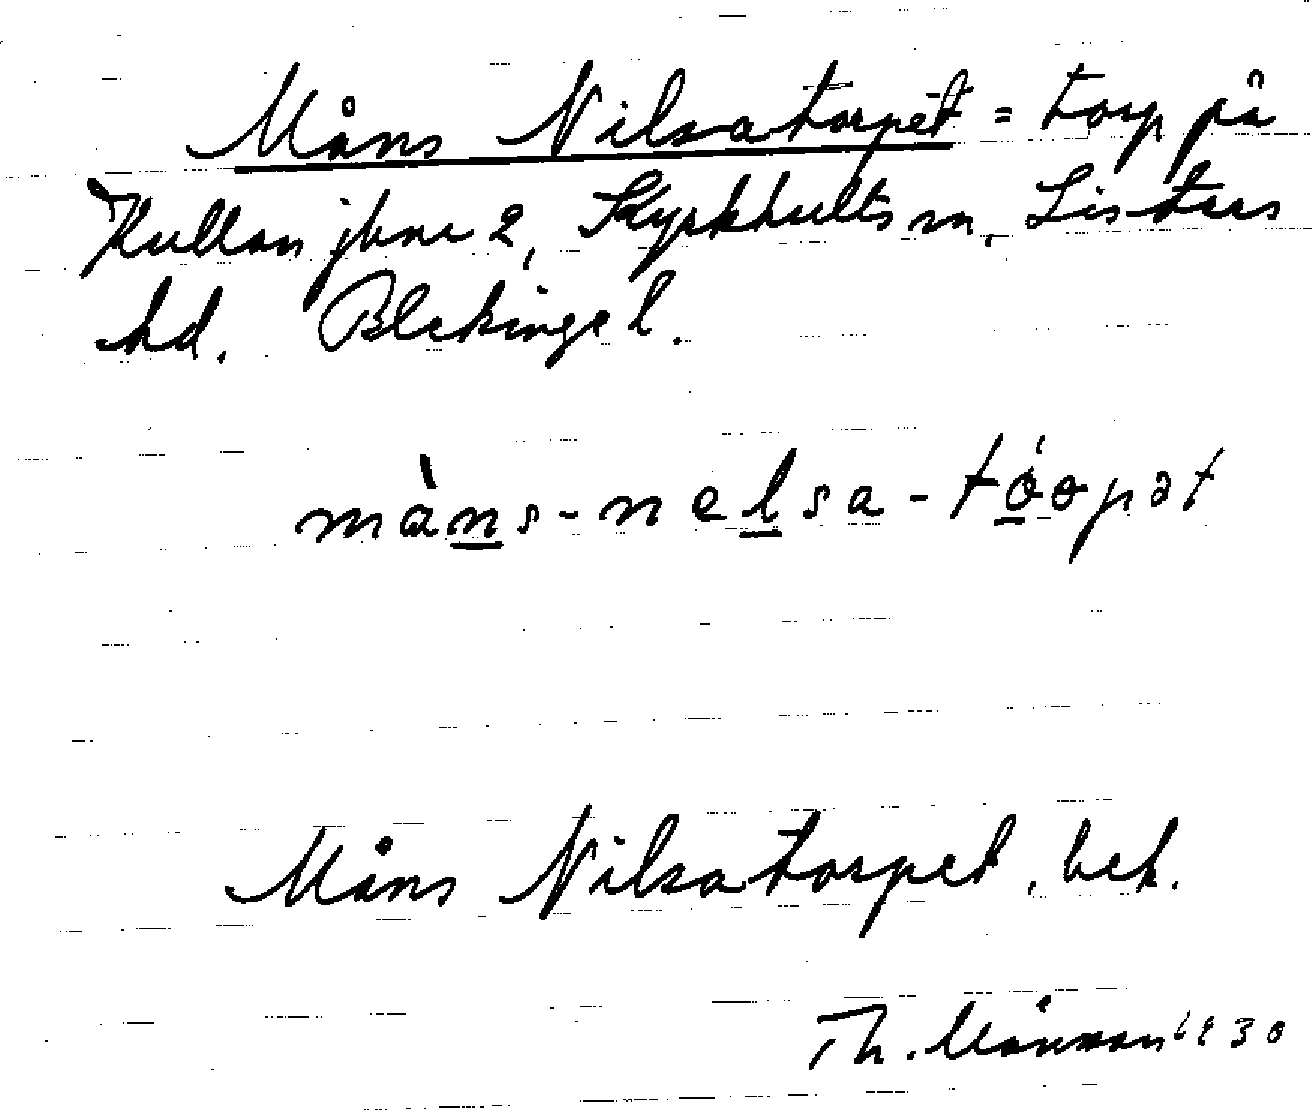 Måns Nilsatorpet = torp på
Kullan jbnr 2, Kyrkhults sn, Listers
hd. Blekinge l.
måns-nelsa-tóopət
Måns Nilsatorpet, bek.
Th. 30